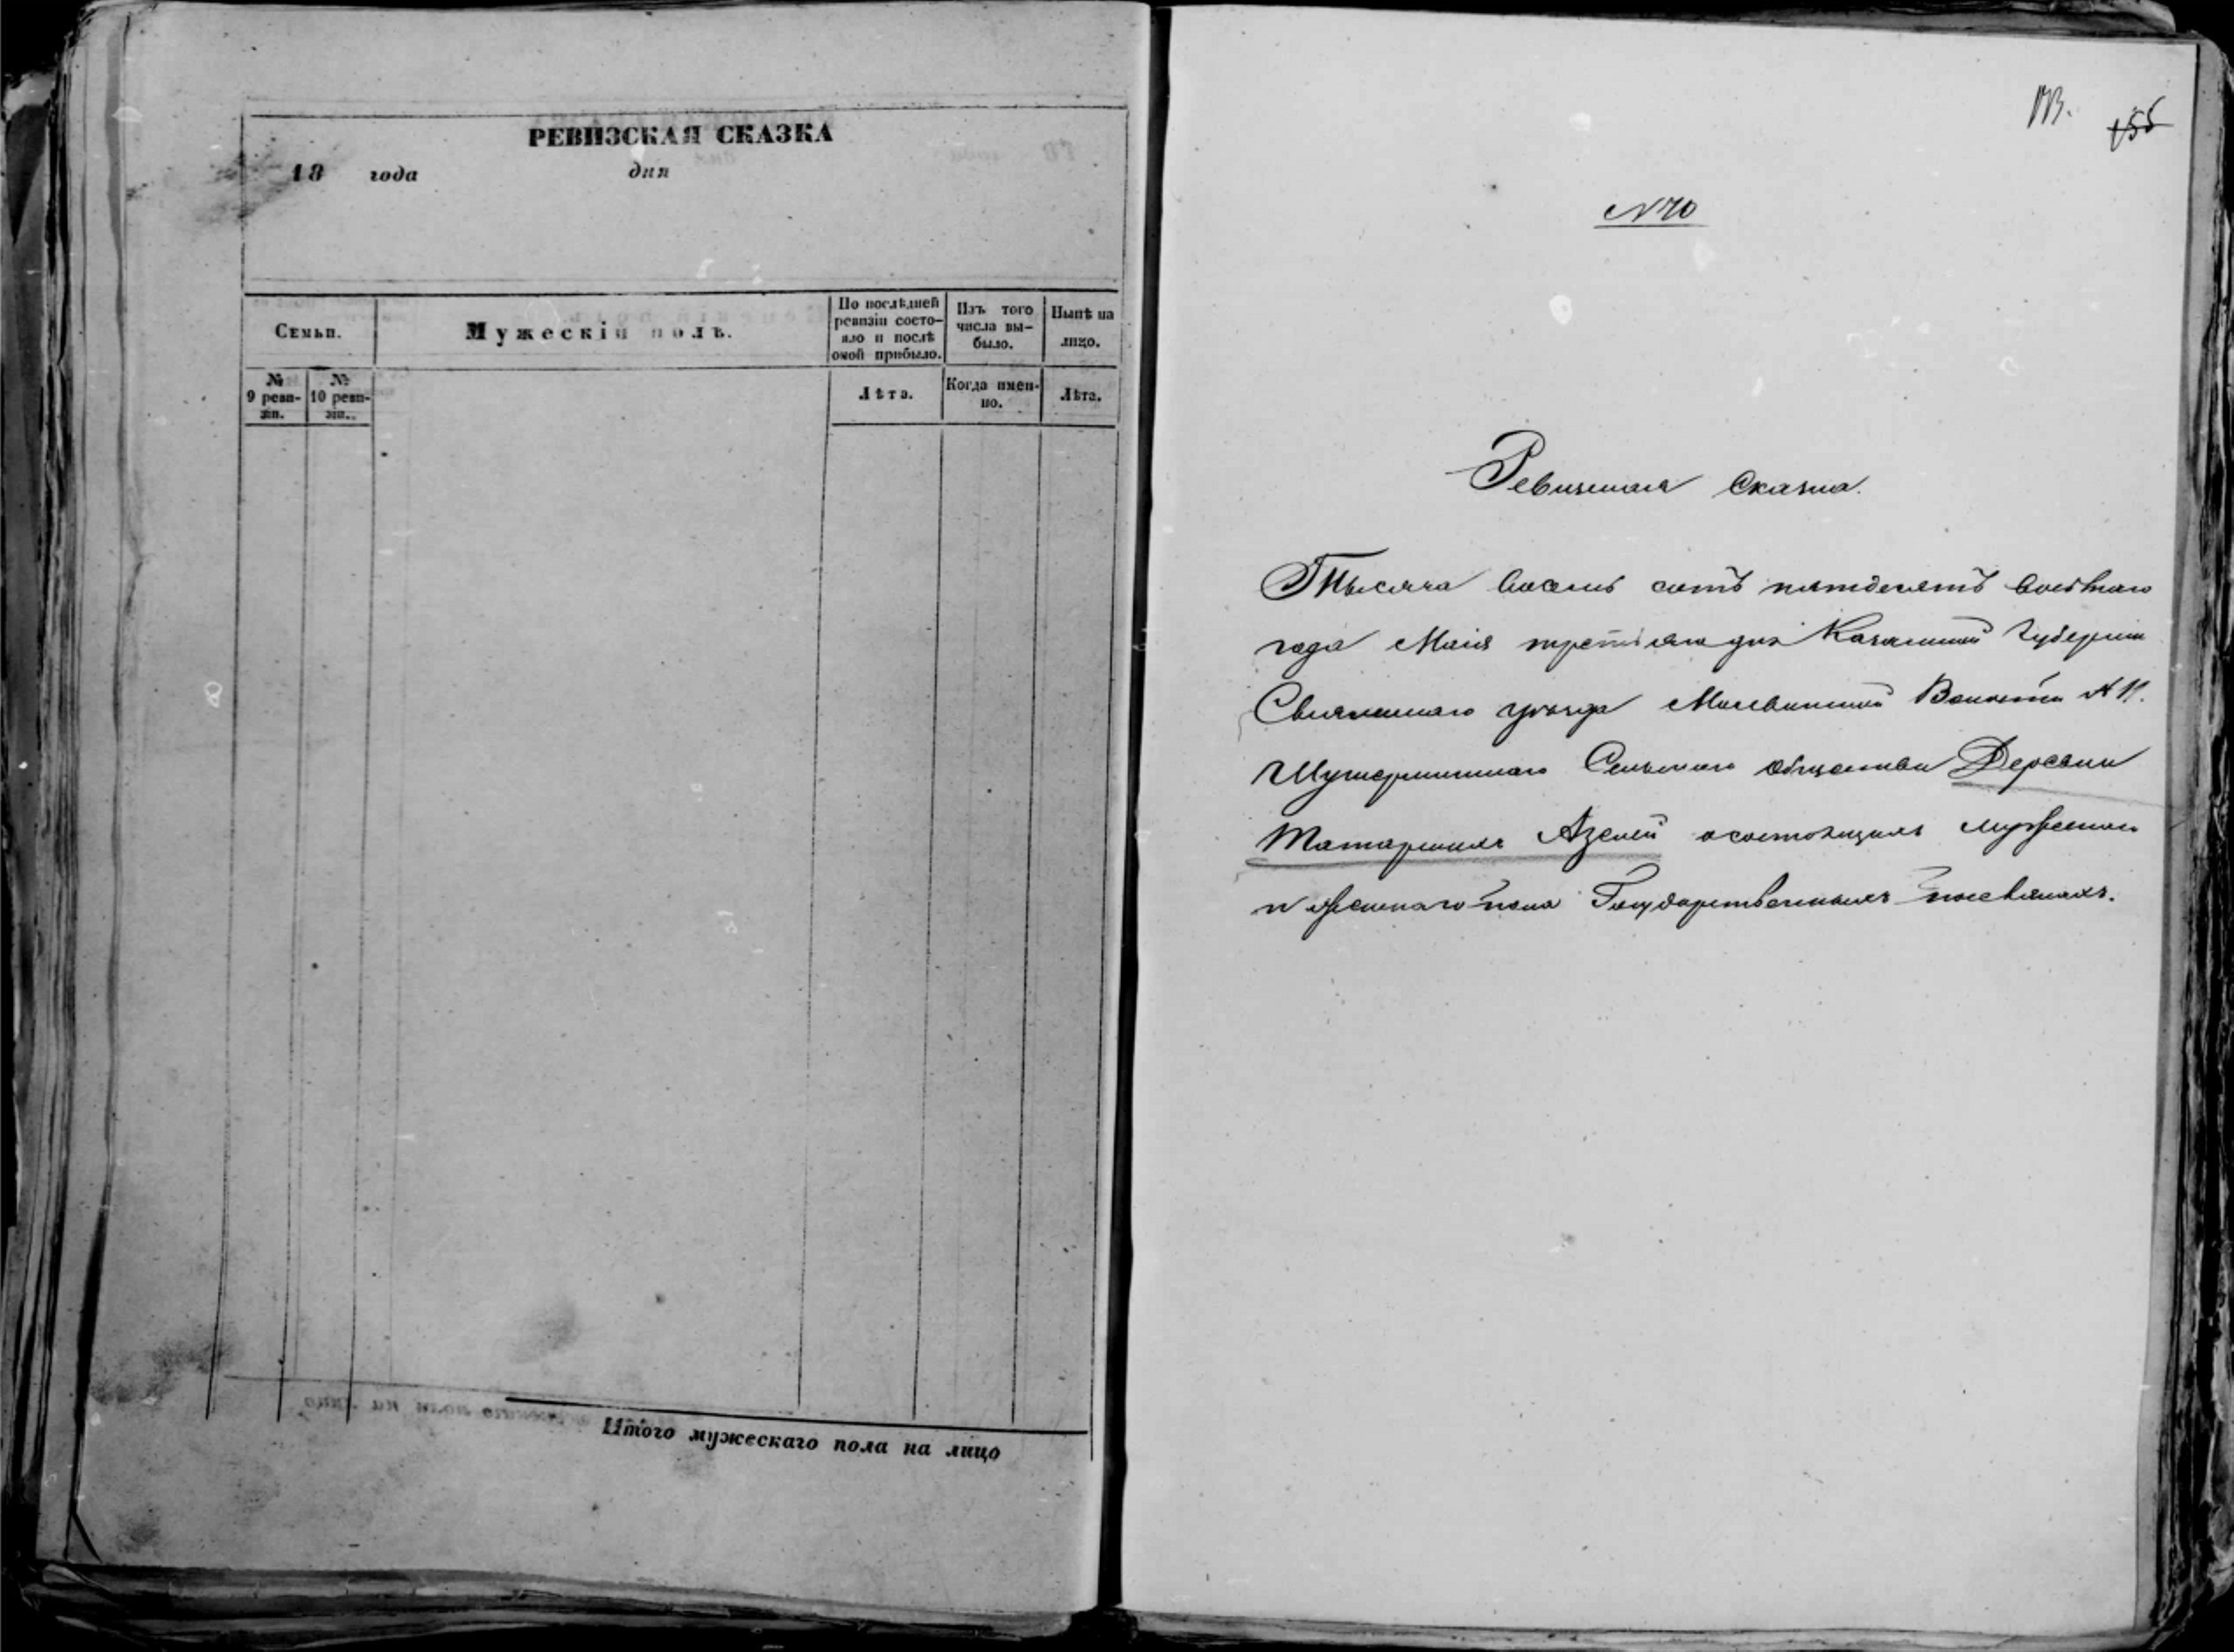 РЕВИЗСКАЯ СКАЗКА
18 года дня
Семьи.
Мужескій полъ.
По послѣдней
ревизіи состо-
яло и послѣ
оной прибыло.
Изъ того
числа вы-
было.
Нынѣ на
лицо.
№
9 реви-
зіи.
№
10 реви-
зіи.
Лѣта.
Когда имен-
но.
Лѣта.
Итого мужескаго пола на лицо
155
№ 70
Ревизская Сказка.
Тысяча восемь сотъ пятдесятъ восьмаго
года Маія третьяго дня Казанской Губерніи
Свіяжскаго уѣзда Волости
Сельскаго общества Деревни
Татарскихъ Азелей о состоящихъ мужескаго
и женскаго пола Государственныхъ поселянахъ.